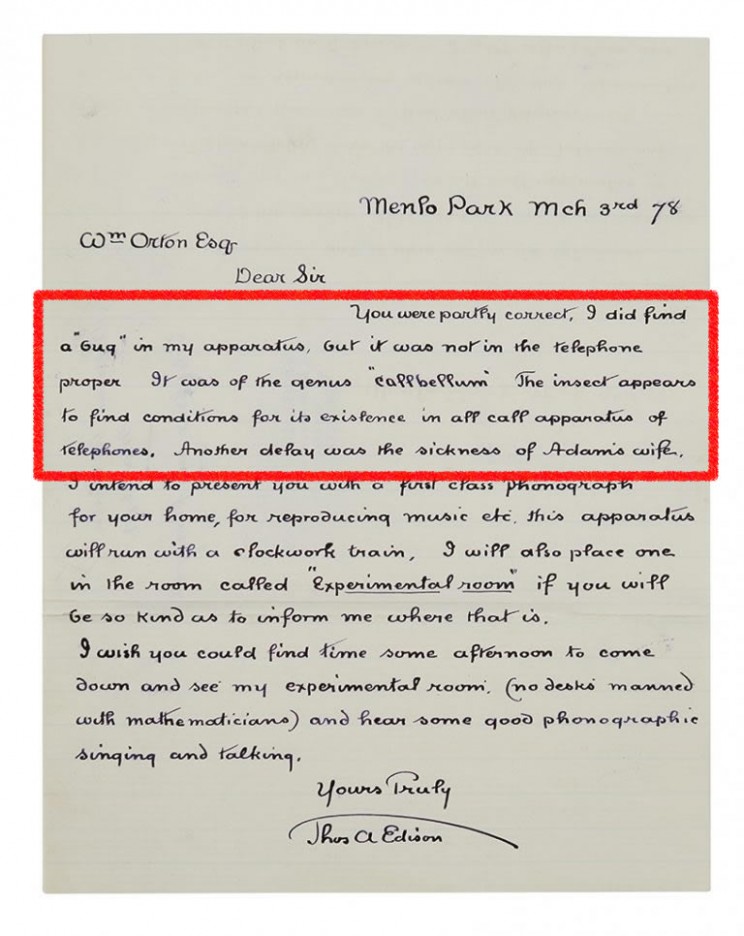 Menlo Park Mch 3rd 78
Wm Orton Esqr
Dear Sir
You were partly correct, I did find
a "bug" in my apparatus, but it was not in the telephone
proper It was of the genus "callbellum" The insect appears
to find conditions for its existence in all call apparatus of
telephones. Another delay was the sickness of Adams wife.
I intend to present you with a first class phonograph
for your home, for reproducing music etc. this apparatus
will run with a clockwork train, I will also place one
in the room called "Experimental room" if you will
be so kind as to inform me where that is.
I wish you could find time some afternoon to come
down and see my experimental room, (no desks manned
with mathematicians) and hear some good phonographic
singing and talking.
Yours Truly
Thos A Edison